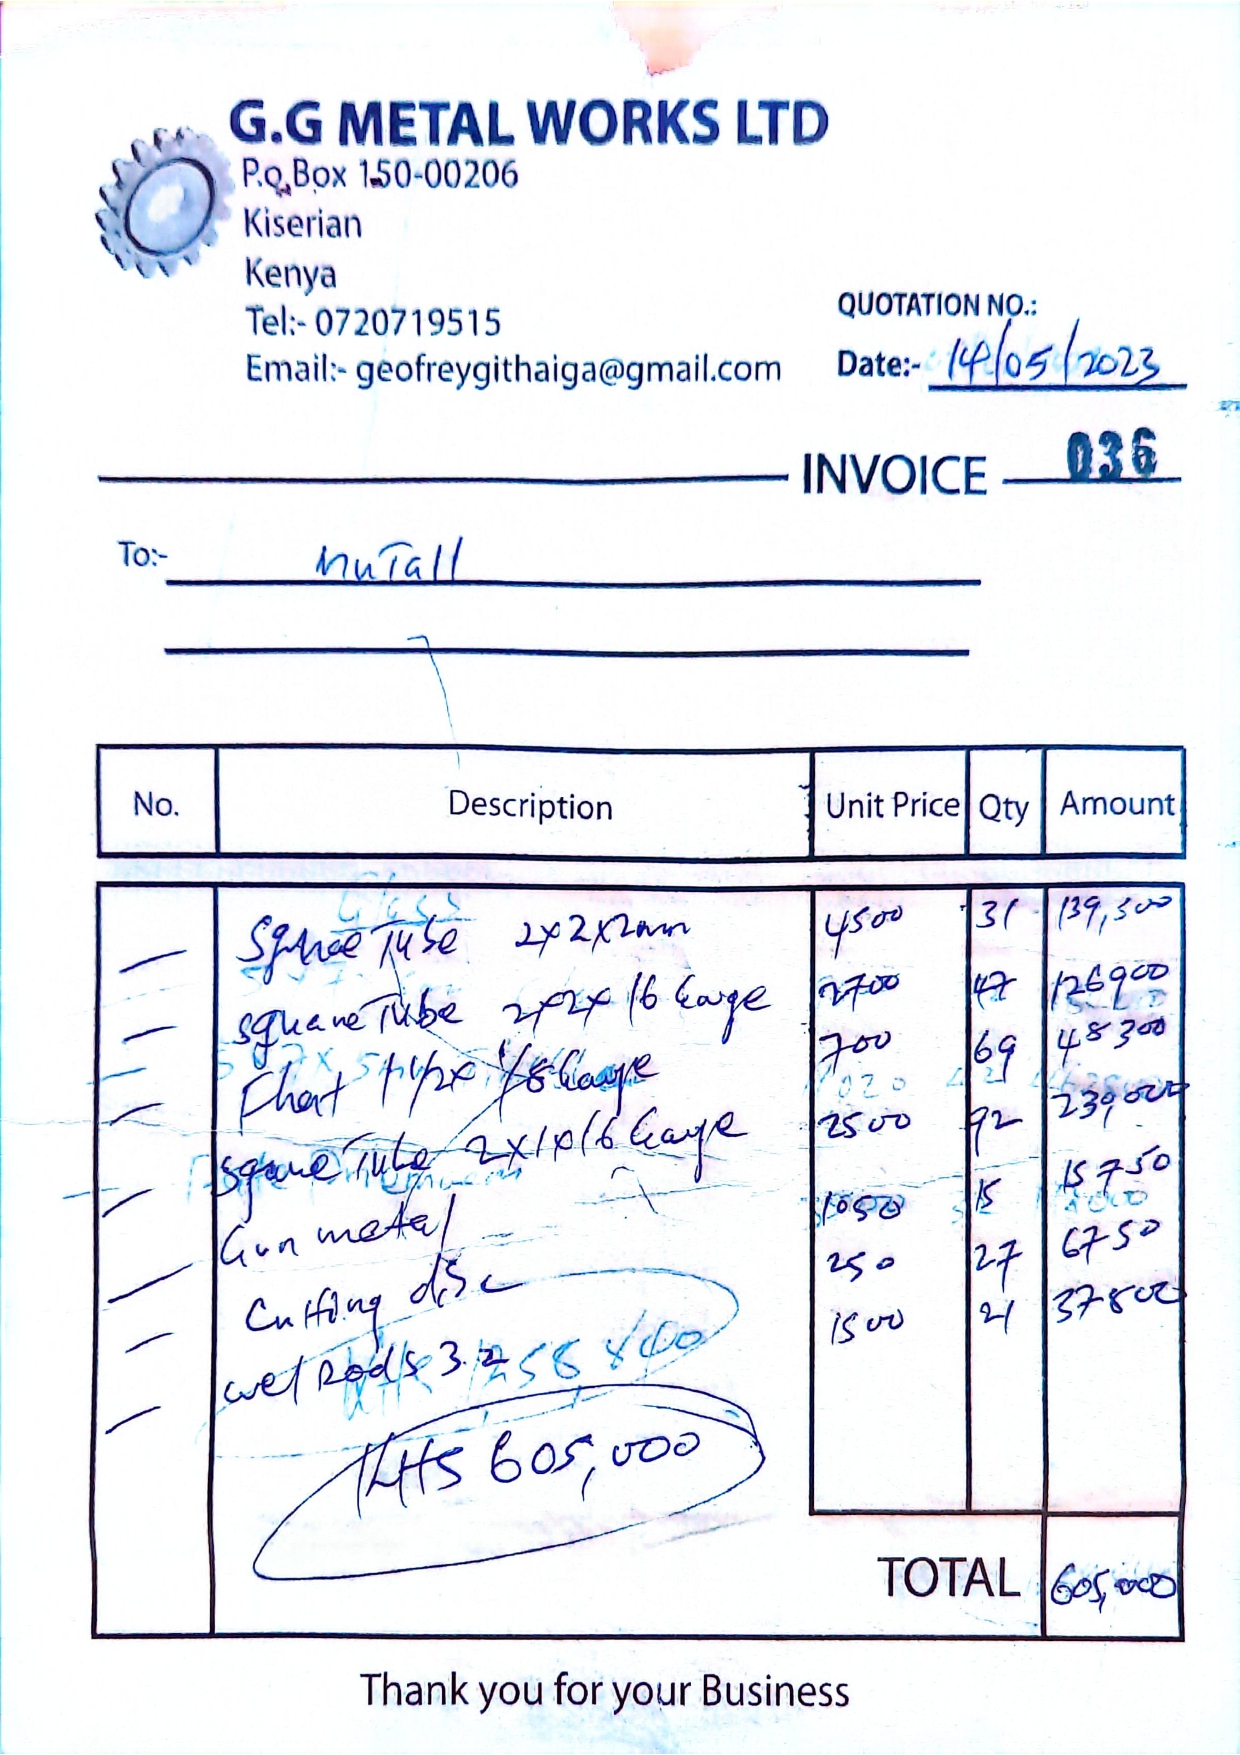 G.G METAL WORKS LTD
P.o.Box 150-00206
Kiserian
Kenya
Tel:- 0720719515
Email:- geofreygithaiga@gmail.com
QUOTATION NO.:
Date:- 14/05/2023
INVOICE 036
To:- MuTall
No. Description Unit Price Qty Amount
Square Tube 2x2x2mm 4500 31 139,500
square Tube 2x2x16 Gauge 2700 47 126900
Fhat 1 1/2x 1/8 Gauge 700 69 48300
square Tube 2x1x16 Gauge 2500 92 230,000
Gun metal 1050 15 15750
Cutting disc 250 27 6750
wel Rods 3.2 1500 21 37800
KHS 605,000
TOTAL 605,000
Thank you for your Business